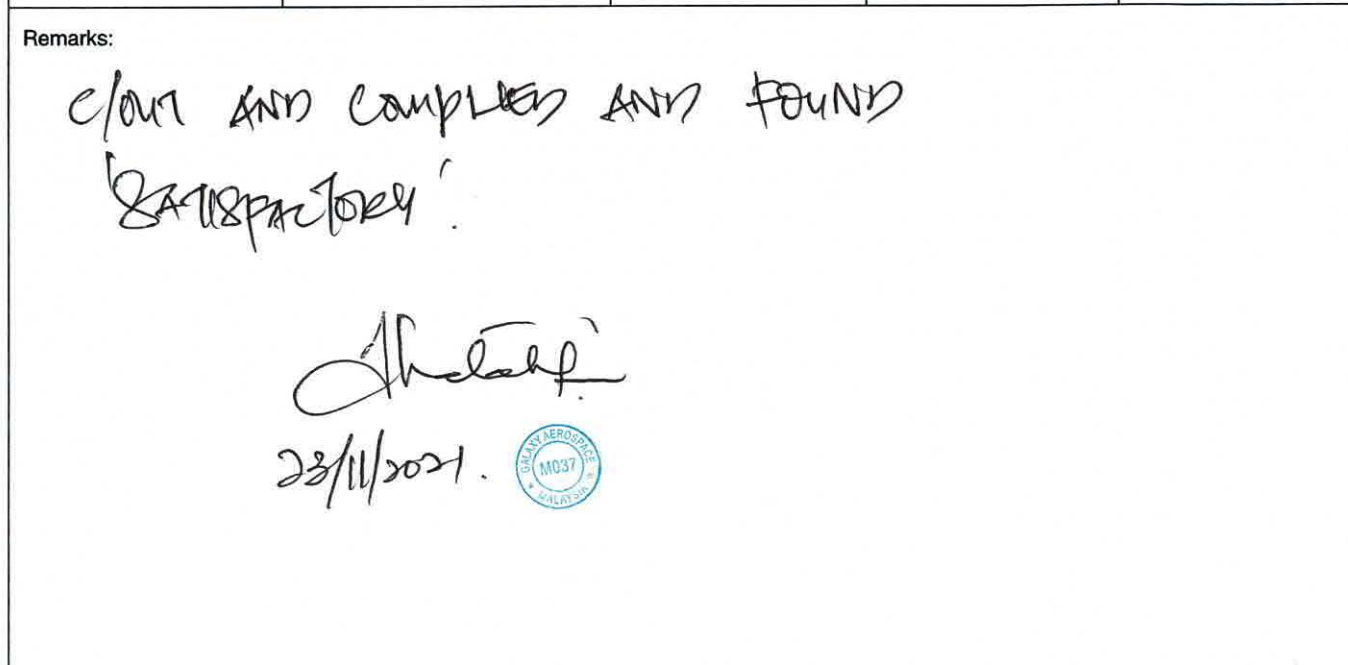 Remarks:
C/OUT AND COMPLIED AND FOUND
'SATISFACTORY'.
23/11/2021.
GALAXY AEROSPACE
M037
* MALAYSIA *